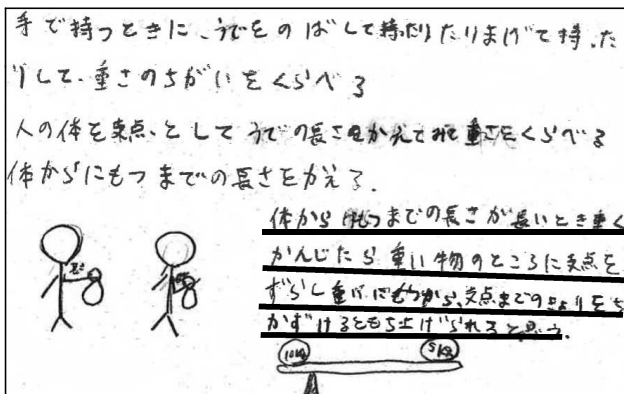 手で持つときに、うでをのばして持ったりたりまげて持った
りして、重さのちがいをくらべる
人の体を支点、としてうでの長さをかえてみて重さをくらべる
体からにもつまでの長さをかえる。
体からにもつまでの長さが長いとき重く
かんじたら重い物のところに支点を
ずらし重いにもつから、支点までのきょりをち
かずけるともち上げられると思う。
10kg 5kg